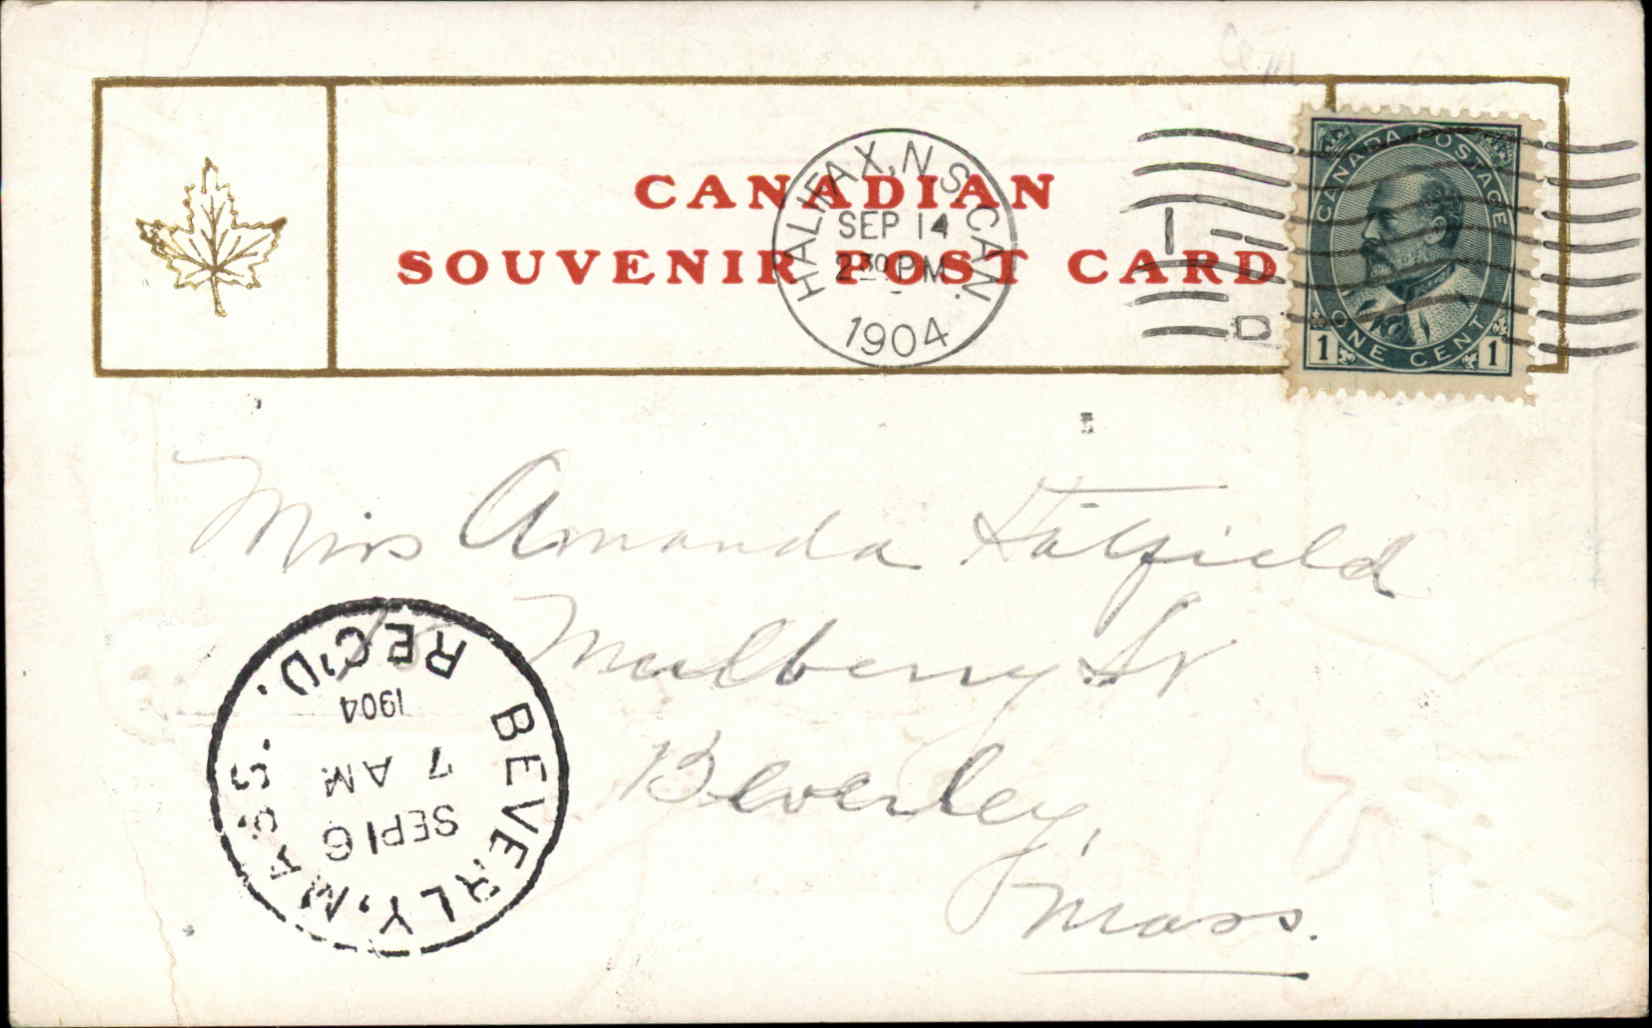 CANADIAN
SOUVENIR POST CARD
HALIFAX, N.S. CAN.
SEP 14
2 30 PM
1904
1
D
CANADA POSTAGE
ONE CENT
1 1
Miss Amanda Hatfield
Mulberry St
Beverley,
Mass.
BEVERLY, MASS.
SEP 16
7 AM
1904
REC'D.